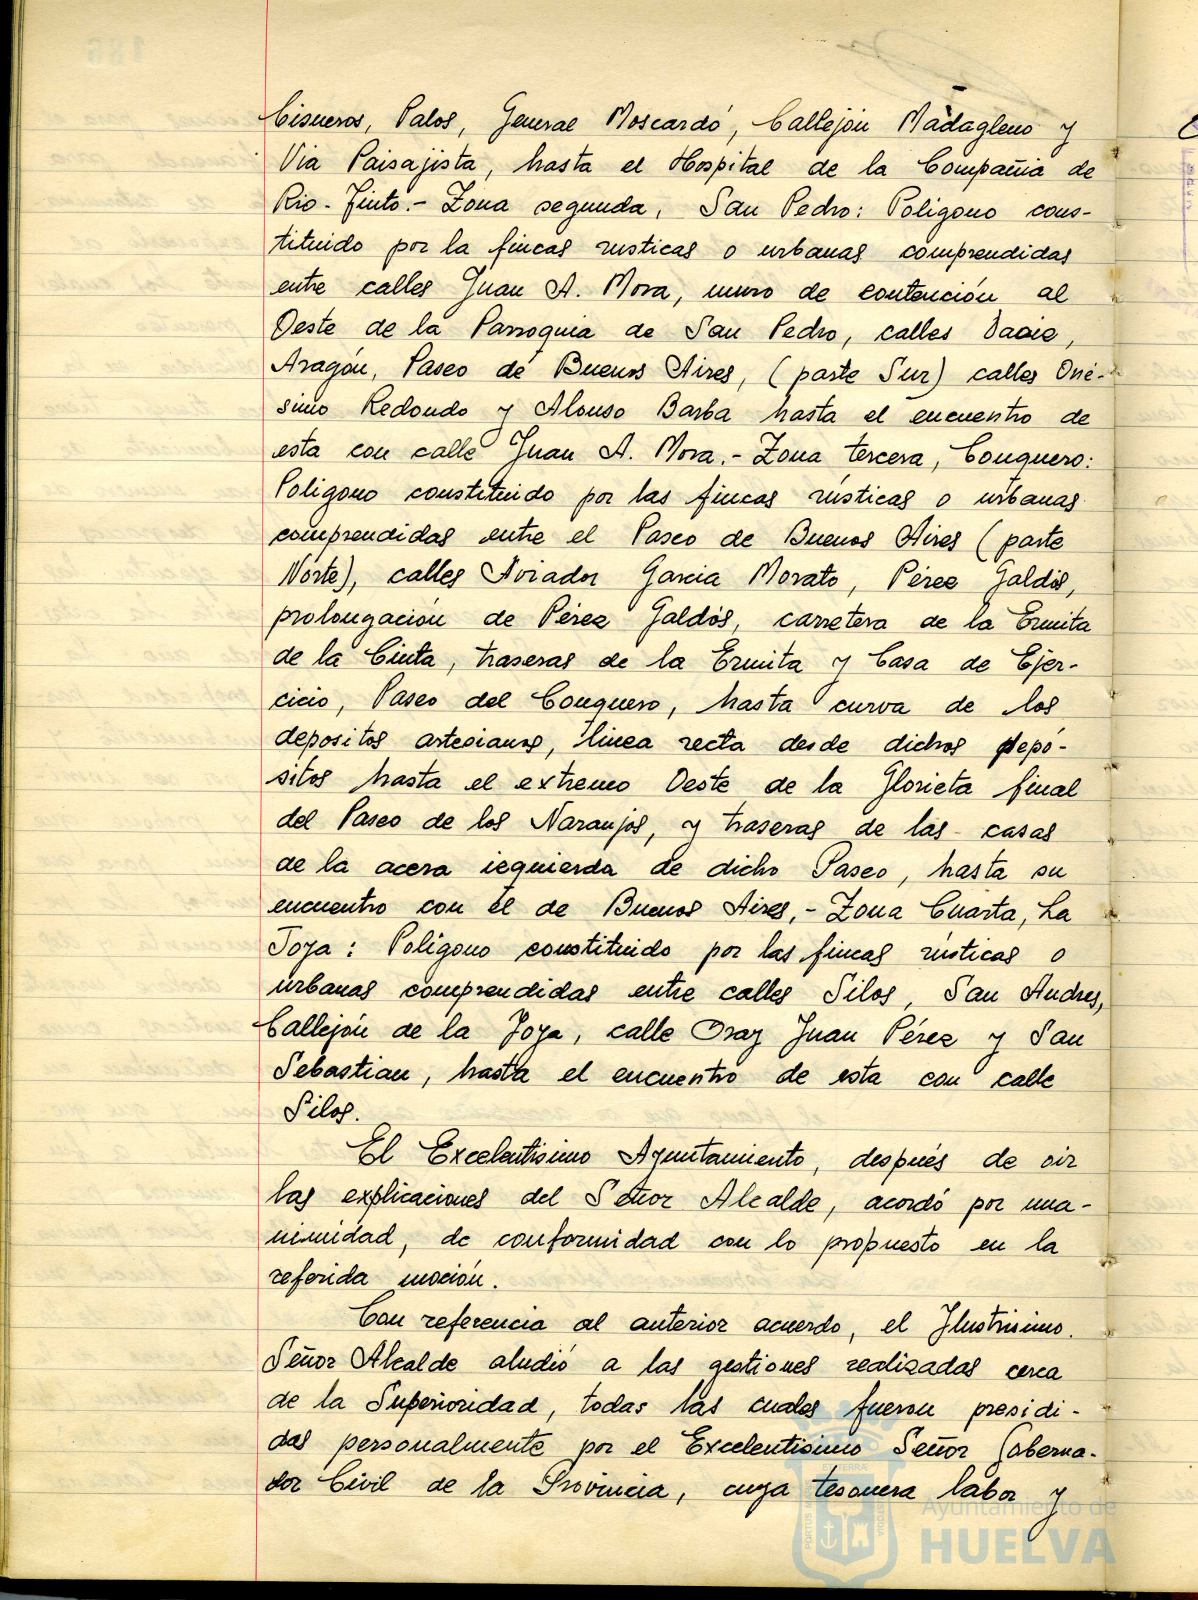 Cisneros, Palos, General Moscardó, Callejón Madagleno y
Via Paisajista, hasta el Hospital de la Compañia de
Rio-Tinto.- Zona segunda, San Pedro: Poligono cons-
tituido por la fincas rusticas o urbanas comprendidas
entre calles Juan A. Mora, muro de contención al
Oeste de la Parroquia de San Pedro, calles Daoiz,
Aragón, Paseo de Buenos Aires, (parte Sur) calles Oné-
simo Redondo y Alonso Barba hasta el encuentro de
esta con calle Juan A. Mora.- Zona tercera, Conquero:
Poligono constituido por las fincas rústicas o urbanas
comprendidas entre el Paseo de Buenos Aires (parte
Norte), calles Aviador Garcia Morato, Pérez Galdós,
prolongación de Pérez Galdós, carretera de la Ermita
de la Cinta, traseras de la Ermita y Casa de Ejer-
cicio, Paseo del Conquero, hasta curva de los
depositos artesianos, linea recta desde dichos depó-
sitos hasta el extremo Oeste de la Glorieta final
del Paseo de los Naranjos, y traseras de las casas
de la acera izquierda de dicho Paseo, hasta su
encuentro con el de Buenos Aires,- Zona Cuarta, La
Joya: Poligono constituido por las fincas rústicas o
urbanas comprendidas entre calles Silos, San Andres,
Callejón de la Joya, calle Fray Juan Pérez y San
Sebastian, hasta el encuentro de esta con calle
Silos.
El Excelentisimo Ayuntamiento, después de oir
las explicaciones del Señor Alcalde, acordó por una-
nimidad, de conformidad con lo propuesto en la
referida moción.
Con referencia al anterior acuerdo, el Ilustrisimo
Señor Alcalde aludió a las gestiones realizadas cerca
de la Superioridad, todas las cuales fueron presidi-
das personalmente por el Excelentisimo Señor Goberna-
dor Civil de la Provincia, cuya tesonera labor y
Ayuntamiento de
HUELVA